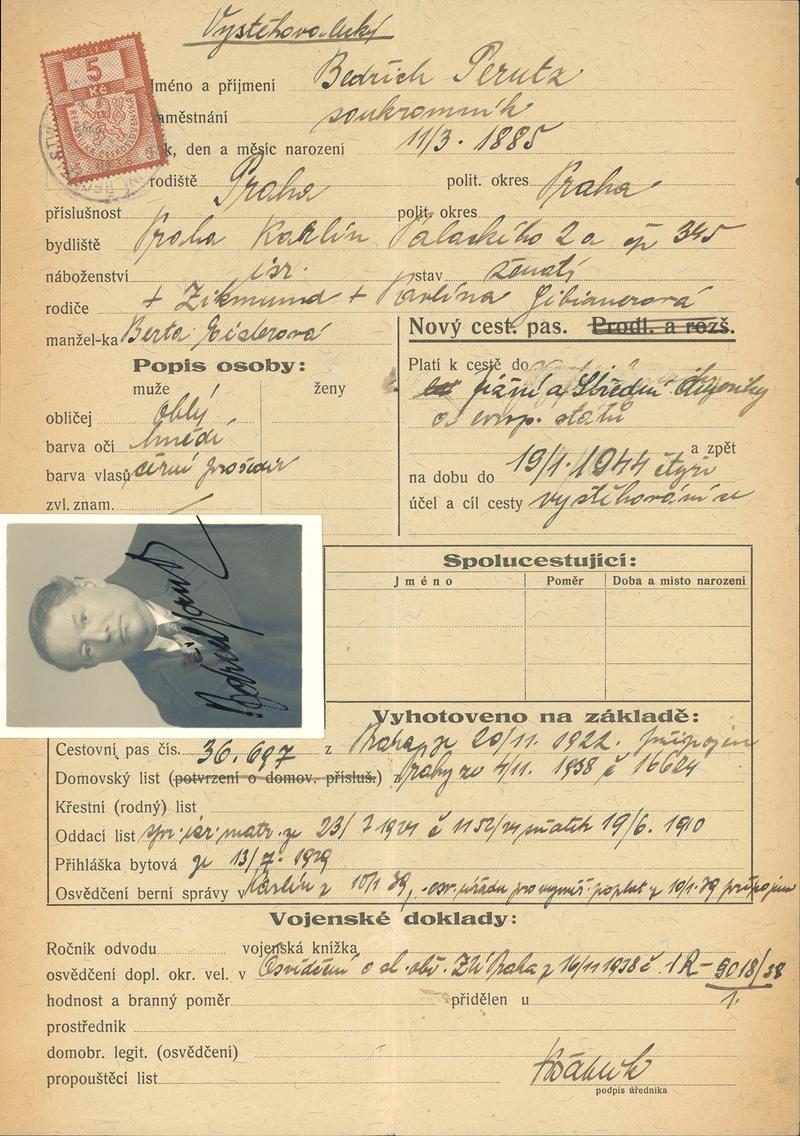 Vystěhovalecký
KOLEK
5
Kč
Jméno a příjmení Bedřich Perutz
zaměstnání soukromník
rok, den a měsíc narození 11/3. 1885
rodiště Praha polit. okres Praha
příslušnost polit. okres
bydliště Praha Karlín Palackého 2a čp 345
náboženství isr. stav ženatý
rodiče + Zikmund + Pavlína Gibianerová
manžel-ka Berta Eislerová
Nový cest. pas. Prodl. a rozš.
Popis osoby:
muže ženy
obličej oblý
barva očí hnědé
barva vlasů černé prošedir
zvl. znam.
Platí k cestě do
jižní a Střední Ameriky
os evrop. států
a zpět
na dobu do 19/1. 1944 čtyři
účel a cíl cesty vystěhování se
Spolucestující:
Jméno Poměr Doba a místo narození
Vyhotoveno na základě:
Cestovní pas čís. 36.697 z Praha ze 20/11. 1922. připojen
Domovský list (potvrzení o domov. přísluš.) z Prahy ze 4/11. 1938 č 16624
Křestní (rodný) list
Oddací list isr. matr. ze 23/7 1924 č 1152/24 sňatek 19/6. 1910
Přihláška bytová ze 13/7. 1929
Osvědčení berní správy v Karlín z 10/1 39, osv. úřadu pro vyměř. poplat z 10/1. 39 připojeno
Vojenské doklady:
Ročník odvodu vojenská knížka
osvědčení dopl. okr. vel. v Osvědčení o st. obč. ZÚ Praha z 16/11 1938 č. 1R–9018/38
hodnost a branný poměr přidělen u 1.
prostředník
domobr. legit. (osvědčení)
propouštěcí list
podpis úředníka